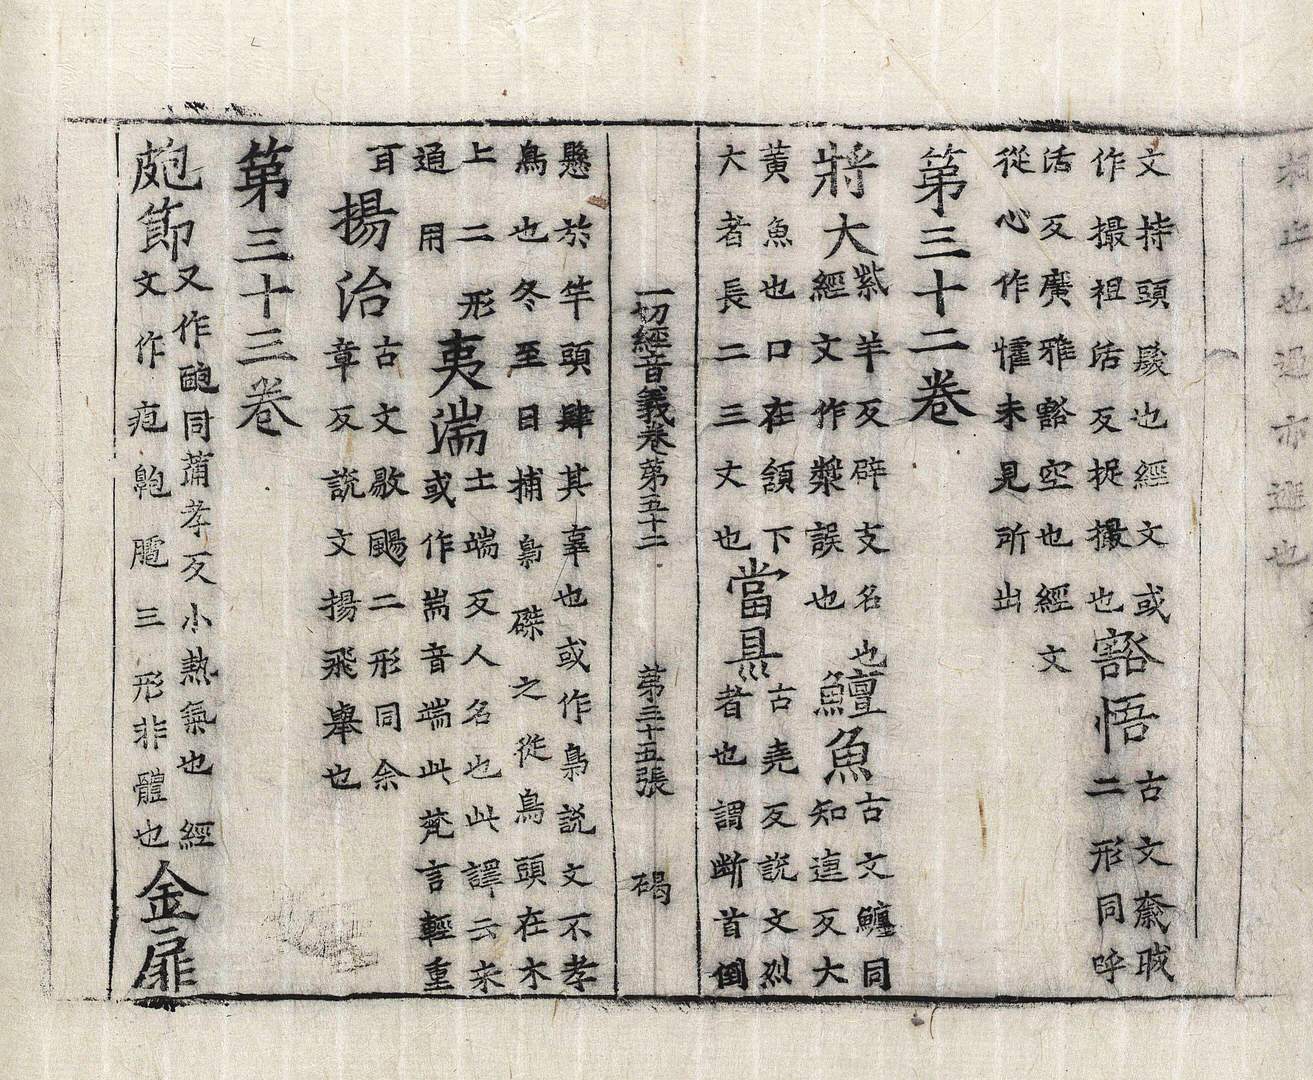 文持頭䯻也經文或
作撮祖活反捉撮也
豁悟
古文奯
二形同呼
活反廣雅豁空也經文
從心作㦜未見所出
第三十二卷
將大
紫羊反辟支名也
經文作漿誤也
鱣魚
古文鱣同
知連反大
黃魚也口在頷下
大者長二三丈也
當県
古堯反說文烈
者也謂斷首倒
一切經音義卷第五十二 第三十五張 碣
懸於竿頭肆其辜也或作梟說文不孝
鳥也冬至日捕梟磔之從鳥頭在木
上二形
通用
夷湍
土端反人名也此譯云來
或作耑音端此梵言輕重
耳
揚治
古文敭颺二形同余
章反說文揚飛舉也
第三十三卷
皰節
又作䶌同蒲孝反小熱氣也經
文作疱𪖐䐗三形非體也
金扉